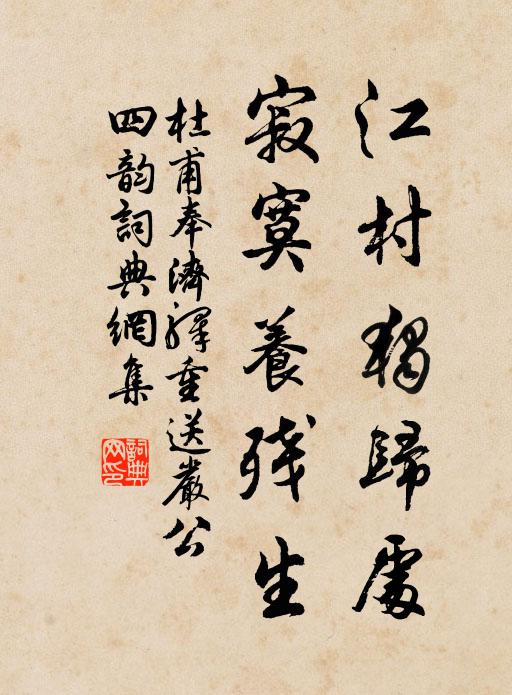 江村獨歸處
寂寞養殘生
杜甫奉濟驛重送嚴公
四韵詞典網集
詞典
网印